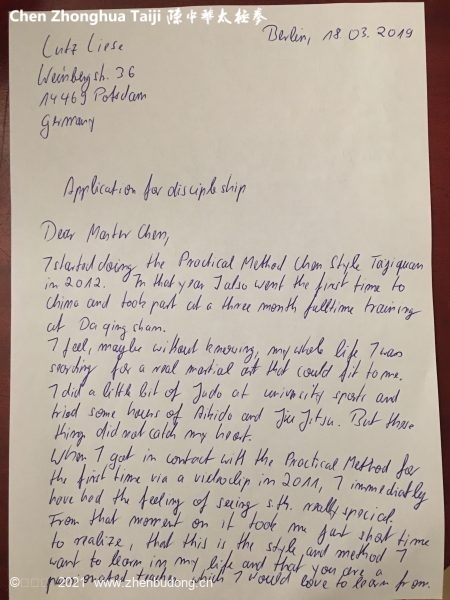 Chen Zhonghua Taiji 陈中华太极拳
Lutz Liese
Berlin, 18 03. 2019
Weinbergstr. 36
14469 Potsdam
Germany
Application for discipleship
Dear Master Chen,
I started doing the Practical Method Chen Style Taijiquan
in 2012. In that year I also went the first time to
China and took part at a three month fulltime training
at Da qing shan.
I feel, maybe without knowing, my whole life I was
searching for a real martial art that could fit to me.
I did a little bit of Judo at university sports and
tried some hours of Aikido and Jiu Jitsu. But these
things did not catch my heart.
When I got in contact with the Practical Method for
the first time via a videoclip in 2011, I immediately
have had the feeling of seeing s.th. really special.
From that moment on it took me just short time
to realize, that this is the style and method I
want to learn in my life and that you are a
passionated teacher which I would love to learn from.
2021 www.zhenbudong.cn